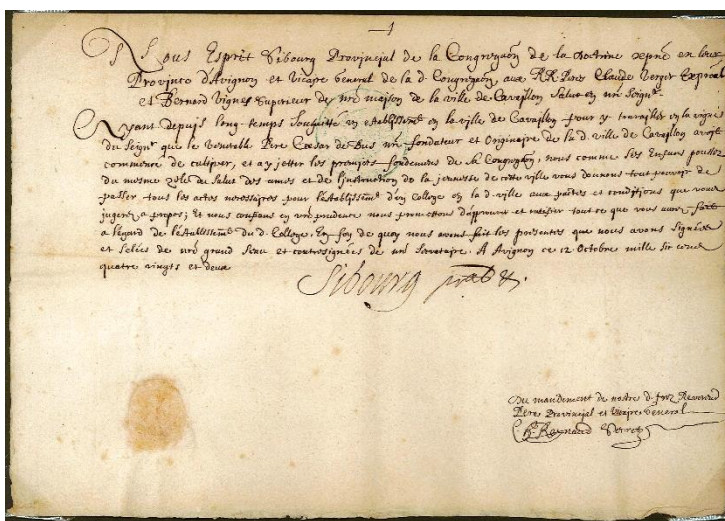 1
Nous Esprit Sibourg Provincial de la Congregaõn de la Doctrine xepñe en la
Province d'Avignon et Vicaire General de la d. Congregaõn, aux RR. Peres Claude Verger Exproal
et Bernard Vignes Superieur de nrẽ maison de la ville de Cavaillon Salut en nrẽ Seignr.
Ayant depuis long temps souhaitté un establissemt en la ville de Cavaillon pour y travailler en la vigne
du Seignr que le Venerable Pere Cæsar de Bus nrẽ fondateur et Originaire de la d. ville de Cavaillon avoit
commencé de cultiver, et a y jetter les premiers fondemens de sa Congregaõn, nous comme ses Enfans poussez
du mesme zele du salut des ames et de l'instruction de la jeunesse de cette ville vous donnons tout pouvoir de
passer tous les actes necessaires pour l'establissemt d'un College en la d. ville aux pactes et conditions que vous
jugerez a propos; Et nous confians en vrẽ prudence nous promettons d'approuver et ratifier tout ce que vous aurez fait
a l'egard de l'establissemt du d. College. En foy de quoy nous avons fait les presentes que nous avons signées
et selées de nrẽ grand Seau et contresignées de nrẽ Secretaire. A Avignon ce 12 Octobre mille six cens
quatre vingts et deux
Sibourg
Du mandement de nostre d. tres Reverend
Pere Provincial et Vicaire General
Raynaud